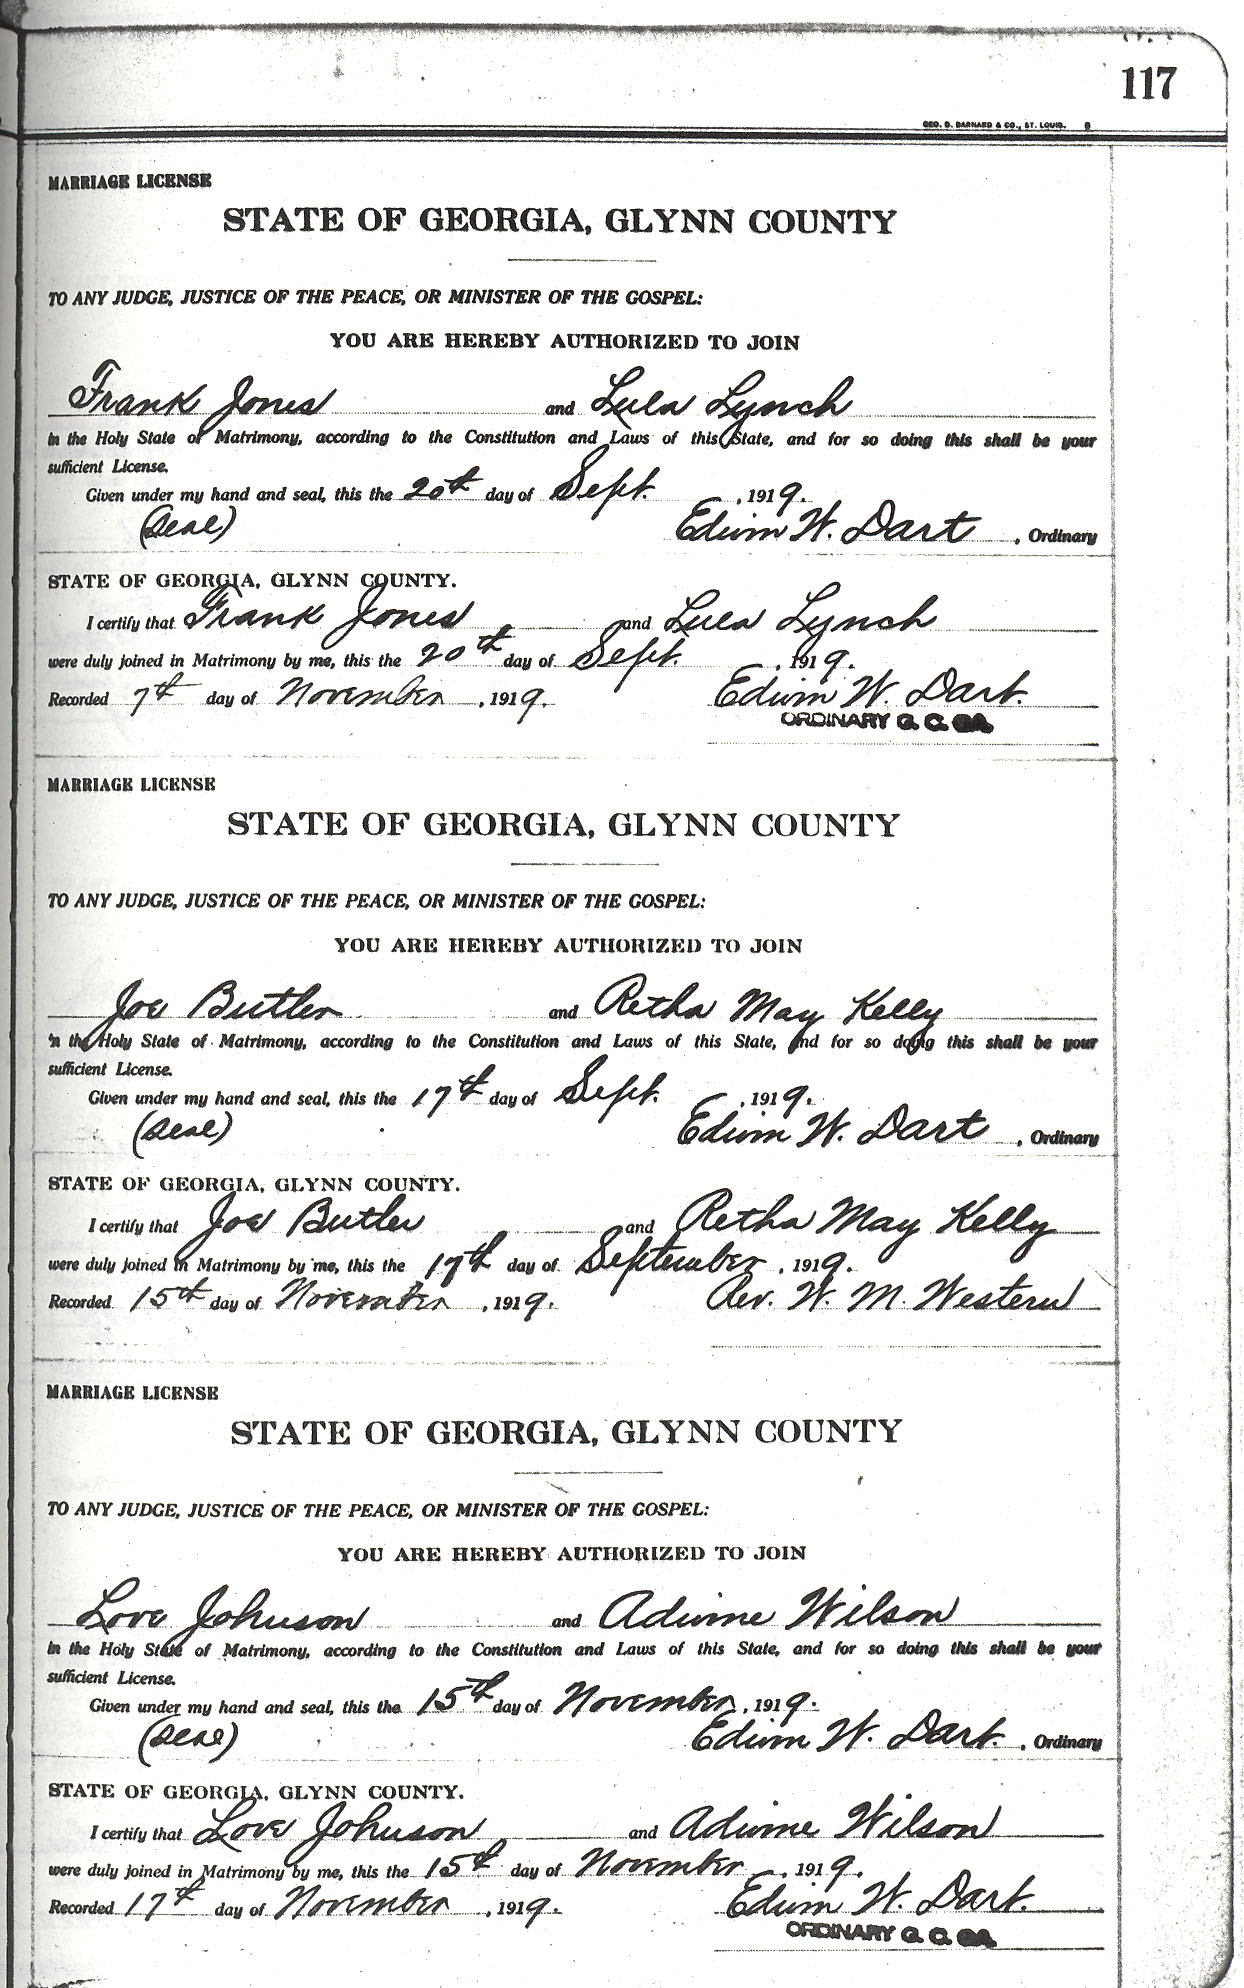 117
GEO. D. BARNARD & CO., ST. LOUIS. B
MARRIAGE LICENSE
STATE OF GEORGIA, GLYNN COUNTY
TO ANY JUDGE, JUSTICE OF THE PEACE, OR MINISTER OF THE GOSPEL:
YOU ARE HEREBY AUTHORIZED TO JOIN
Frank Jones and Lula Lynch
in the Holy State of Matrimony, according to the Constitution and Laws of this State, and for so doing this shall be your
sufficient License.
Given under my hand and seal, this the 20th day of Sept. , 1919.
(Seal) Edwin W. Dart , Ordinary
STATE OF GEORGIA, GLYNN COUNTY.
I certify that Frank Jones and Lula Lynch
were duly joined in Matrimony by me, this the 20th day of Sept. , 1919.
Recorded 7th day of November , 1919. Edwin W. Dart.
ORDINARY G. C. GA.
MARRIAGE LICENSE
STATE OF GEORGIA, GLYNN COUNTY
TO ANY JUDGE, JUSTICE OF THE PEACE, OR MINISTER OF THE GOSPEL:
YOU ARE HEREBY AUTHORIZED TO JOIN
Joe Butler and Retha May Kelly
in the Holy State of Matrimony, according to the Constitution and Laws of this State, and for so doing this shall be your
sufficient License.
Given under my hand and seal, this the 17th day of Sept. , 1919.
(Seal) Edwin W. Dart , Ordinary
STATE OF GEORGIA, GLYNN COUNTY.
I certify that Joe Butler and Retha May Kelly
were duly joined in Matrimony by me, this the 17th day of September , 1919.
Recorded 15th day of November , 1919. Rev. W. M. Western
MARRIAGE LICENSE
STATE OF GEORGIA, GLYNN COUNTY
TO ANY JUDGE, JUSTICE OF THE PEACE, OR MINISTER OF THE GOSPEL:
YOU ARE HEREBY AUTHORIZED TO JOIN
Love Johnson and Adivine Wilson
in the Holy State of Matrimony, according to the Constitution and Laws of this State, and for so doing this shall be your
sufficient License.
Given under my hand and seal, this the 15th day of November , 1919.
(Seal) Edwin W. Dart. , Ordinary
STATE OF GEORGIA, GLYNN COUNTY.
I certify that Love Johnson and Adivine Wilson
were duly joined in Matrimony by me, this the 15th day of November , 1919.
Recorded 17th day of November , 1919. Edwin W. Dart.
ORDINARY G. C. GA.